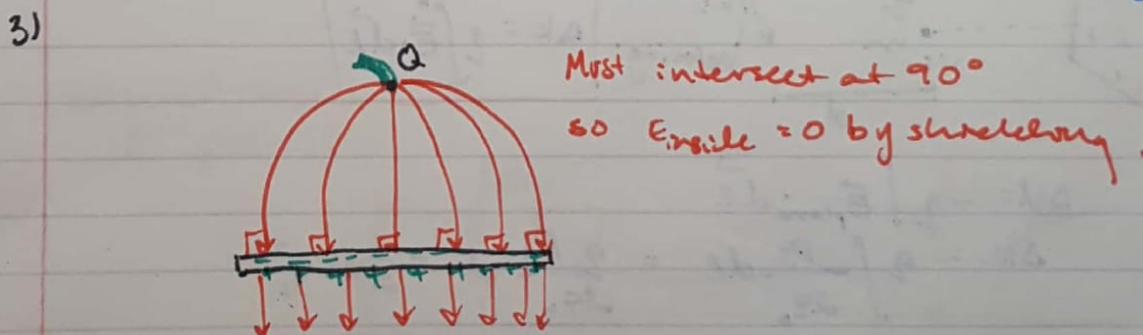 3)
Q
Must intersect at 90°
so Einside = 0 by shielding